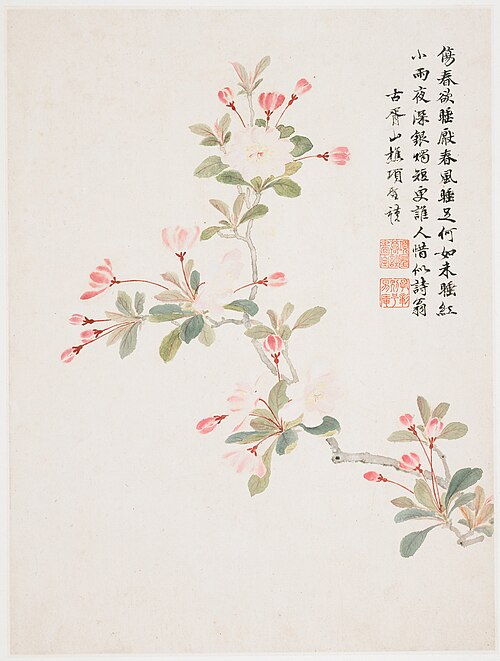 傷春欲睡厭春風睡足何如未睡紅
小雨夜深銀燭短更誰人惜似詩翁
古胥山樵項聖謨